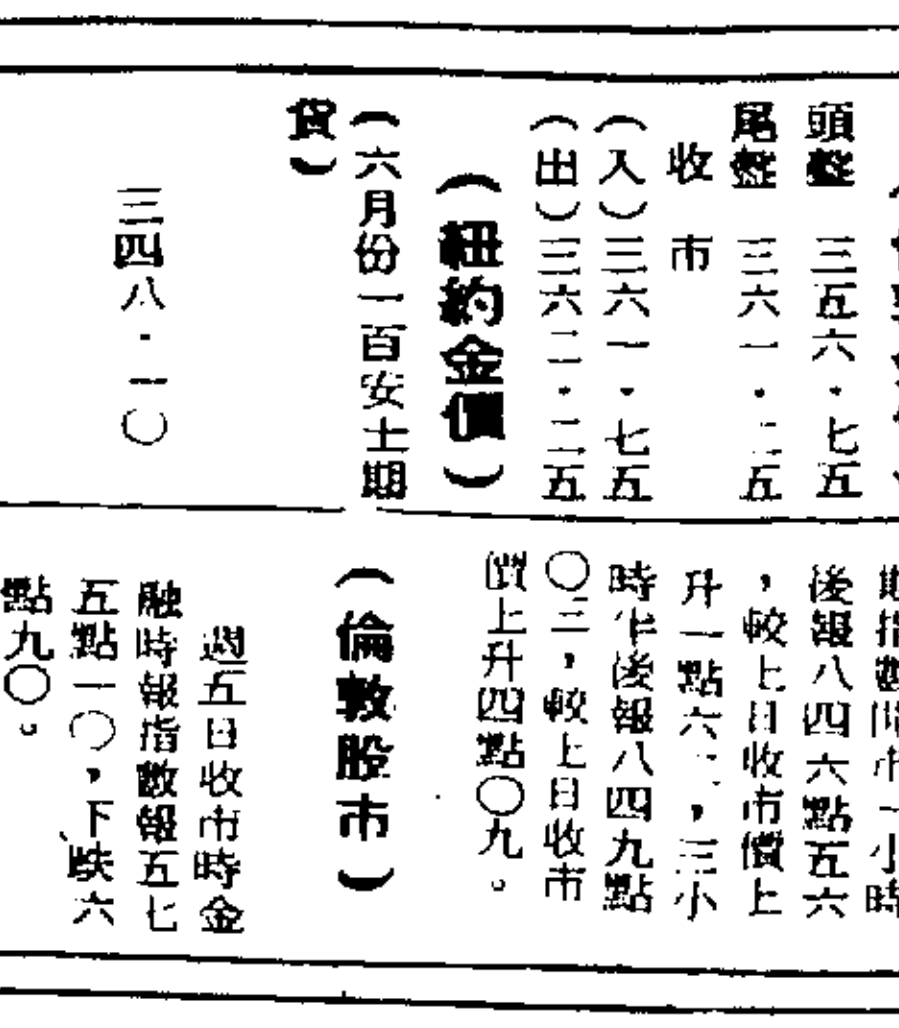 頭盤 三五六・七五
尾盤 三六一・二五
收市
(入)三六一・七五
(出)三六二・二五
(紐約金價)
(六月份一百安士期
貨)
三四八・一〇
後報八四六點五六
,較上日收市價上
升一點六二,三小
時半後報八四九點
〇三,較上日收市
價上升四點〇九。
(倫敦股市)
週五日收市時金
融時報指數報五七
五點一〇,下跌六
點九〇。